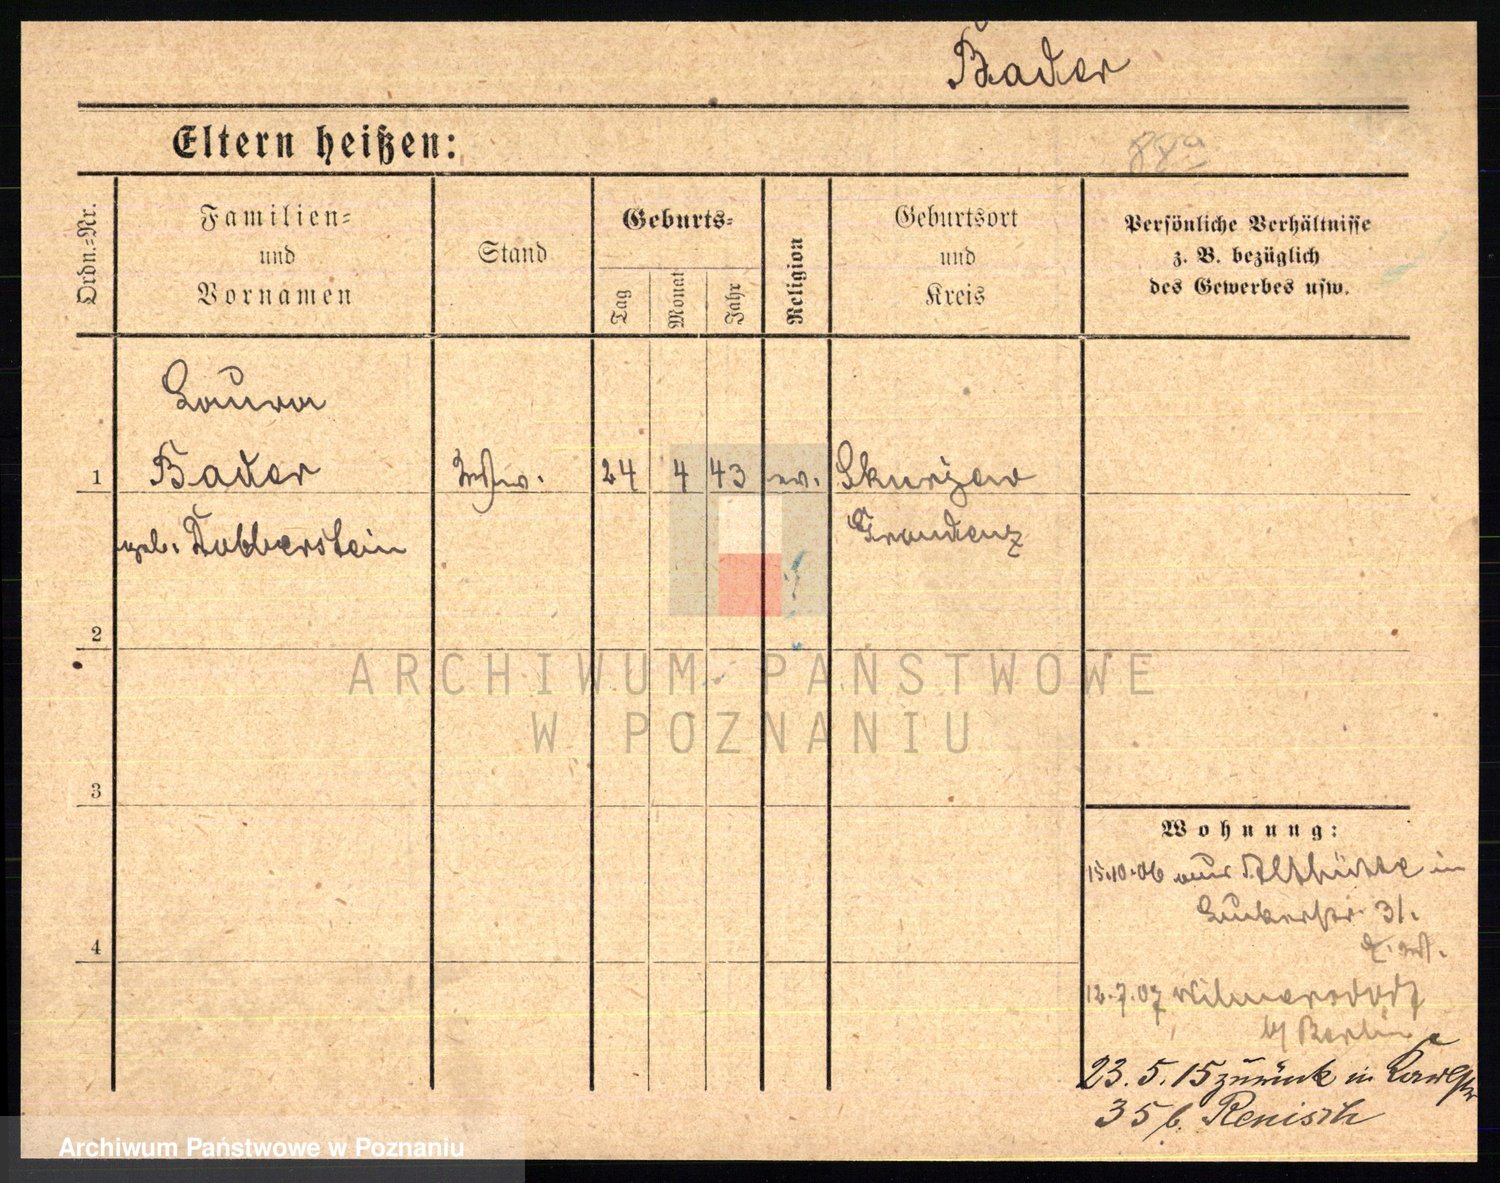 Bader
Eltern heißen:
88a
Ordn.-Nr.
Familien-
und
Vornamen
Stand
Geburts-
Tag
Monat
Jahr
Religion
Geburtsort
und
Kreis
Persönliche Verhältnisse
z. B. bezüglich
des Gewerbes usw.
Laura
1 Bader 24 4 43 ev. Skurjew
geb. Dobberstein Graudenz
2
3
4
Wohnung:
15.10.06 aus Althütte in
31.
12.7.07 Wilmersdorf
b/ Berlin
23.5.15 zurück in
35 b. Renisch
ARCHIWUM PAŃSTWOWE
W POZNANIU
Archiwum Państwowe w Poznaniu